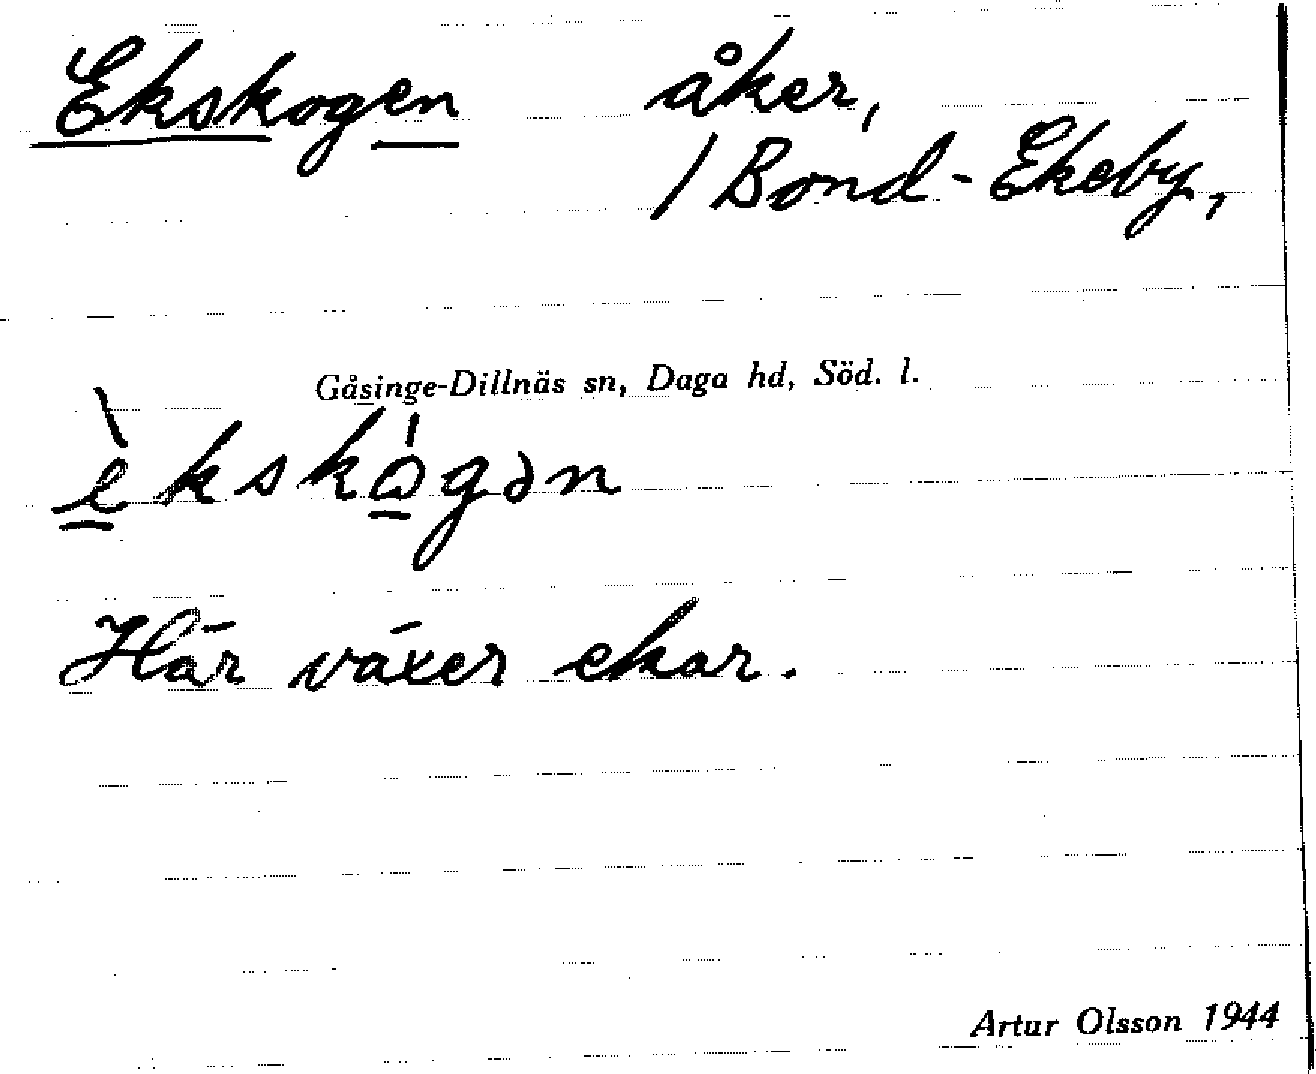 Ekskogen åker,
/ Bond-Ekeby,
Gåsinge-Dillnäs sn, Daga hd, Söd. l.
èkskógən
Här växer ekar.
Artur Olsson 1944